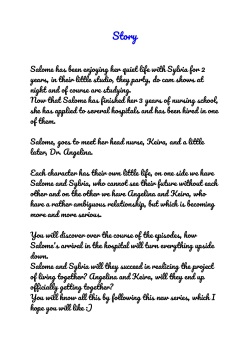 Story
Salome has been enjoying her quiet life with Sylvia for 2
years, in their little studio, they party, do cam shows at
night and of course are studying.
Now that Salome has finished her 3 years of nursing school,
she has applied to several hospitals and has been hired in one
of them.
Salome, goes to meet her head nurse, Keira, and a little
later, Dr. Angelina.
Each character has their own little life, on one side we have
Salome and Sylvia, who cannot see their future without each
other and on the other we have Angelina and Keira, who
have a rather ambiguous relationship, but which is becoming
more and more serious.
You will discover over the course of the episodes, how
Salome's arrival in the hospital will turn everything upside
down.
Salome and Sylvia will they succeed in realizing the project
of living together? Angelina and Keira, will they end up
officially getting together?
You will know all this by following this new series, which I
hope you will like ;)